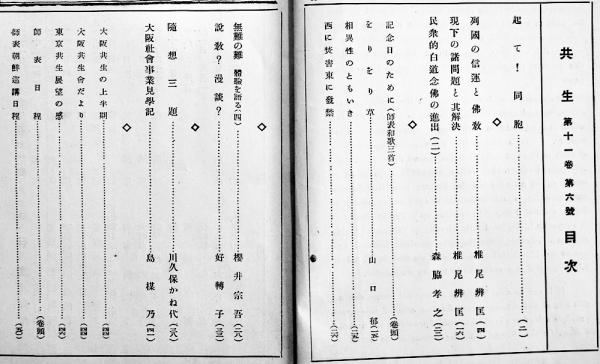 共生 第十一卷 第六號 目次
起て！同胞……(二)
◇
列國の信運と佛敎……椎尾辨匡(四)
現下の諸問題と其解決……椎尾辨匡
民衆的白道念佛の進出(二)……森脇孝之
◇
記念日のために(師表和歌三首)……(卷頭)
をりをり草……山口郁
相異性のともいき
西に焚害東に發禁
無難の難 體驗を語る(四)……櫻井宗吾
說敎？漫談？……好轉子
◇
隨想三題……川久保かね代
大阪社會事業見學記……島楳乃
◇
大阪共生の上半期
大阪共生會だより
東京共生展望の感
師表日程……(卷頭)
師表朝鮮巡講日程